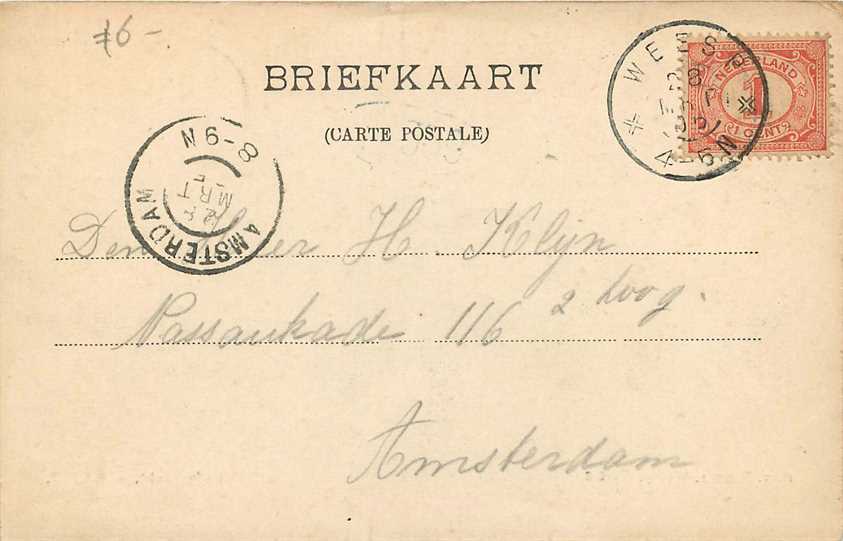 f6 -
BRIEFKAART
(CARTE POSTALE)
WEESP
28
4-5N
NEDERLAND
1
1 CENT
8-9N
MRT
AMSTERDAM
Den Heer H. Klijn
Nassaukade 116 2 hoog.
Amsterdam